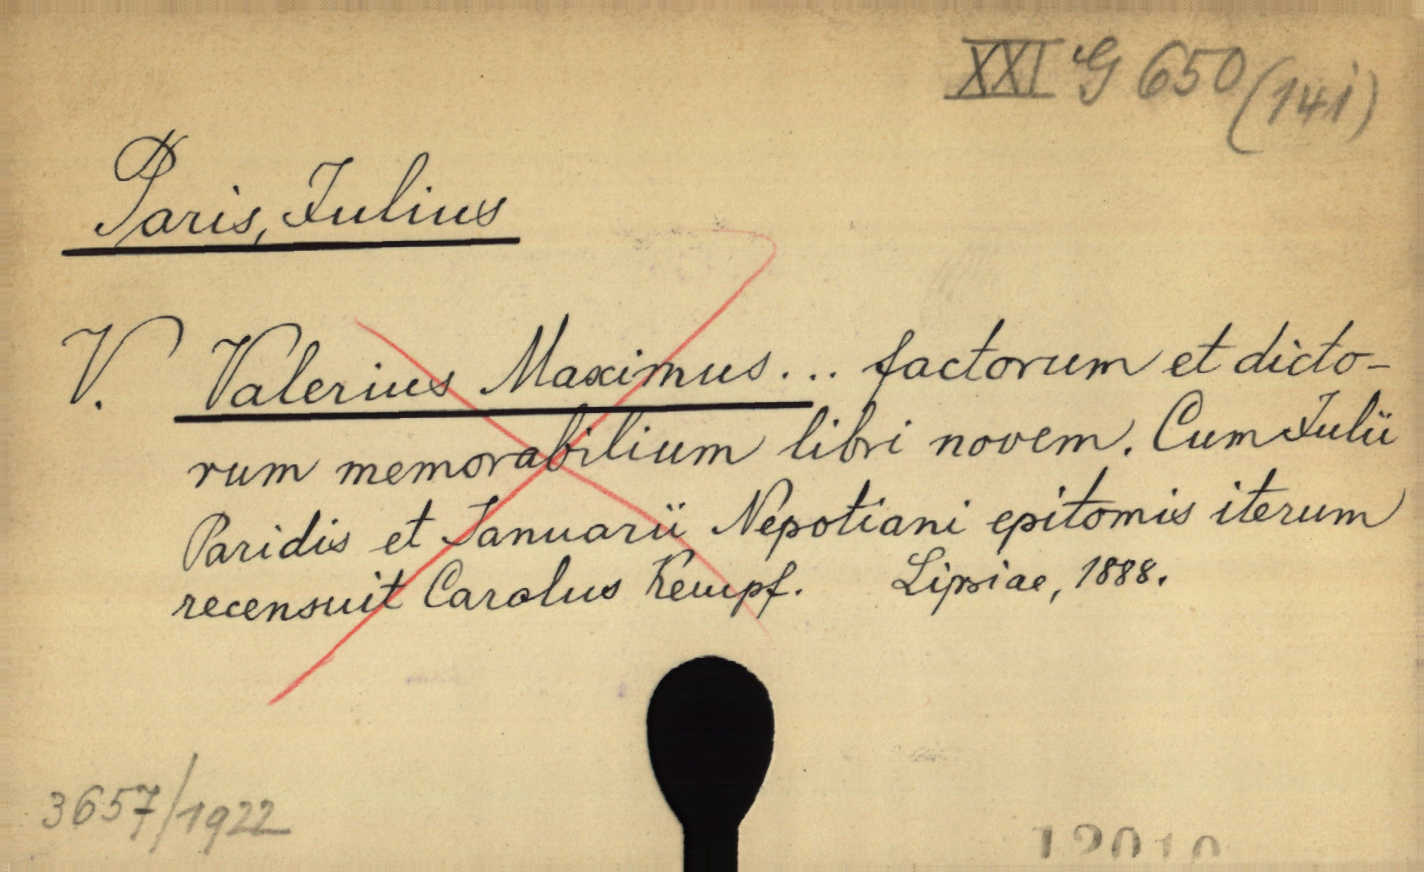 XXI G 650 (14i)
Paris, Julius
V. Valerius Maximus... factorum et dicto-
rum memorabilium libri novem. Cum Julii
Paridis et Ianuarii Nepotiani epitomis iterum
recensuit Carolus Kempf. Lipsiae, 1888.
3657/1922